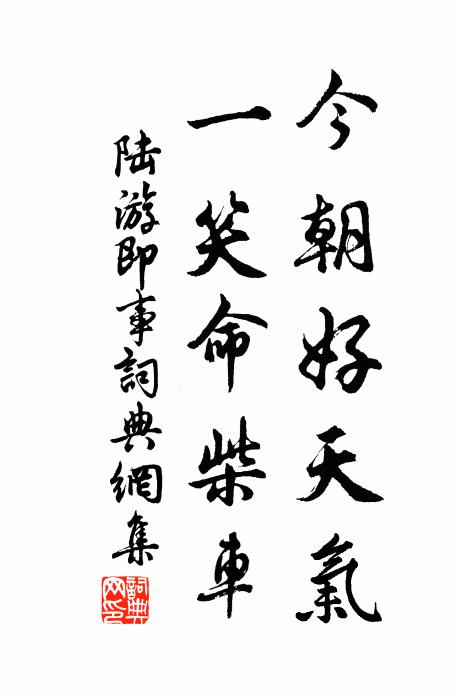 今朝好天氣
一笑命柴車
陸游即事詞典網集
詞典
网印